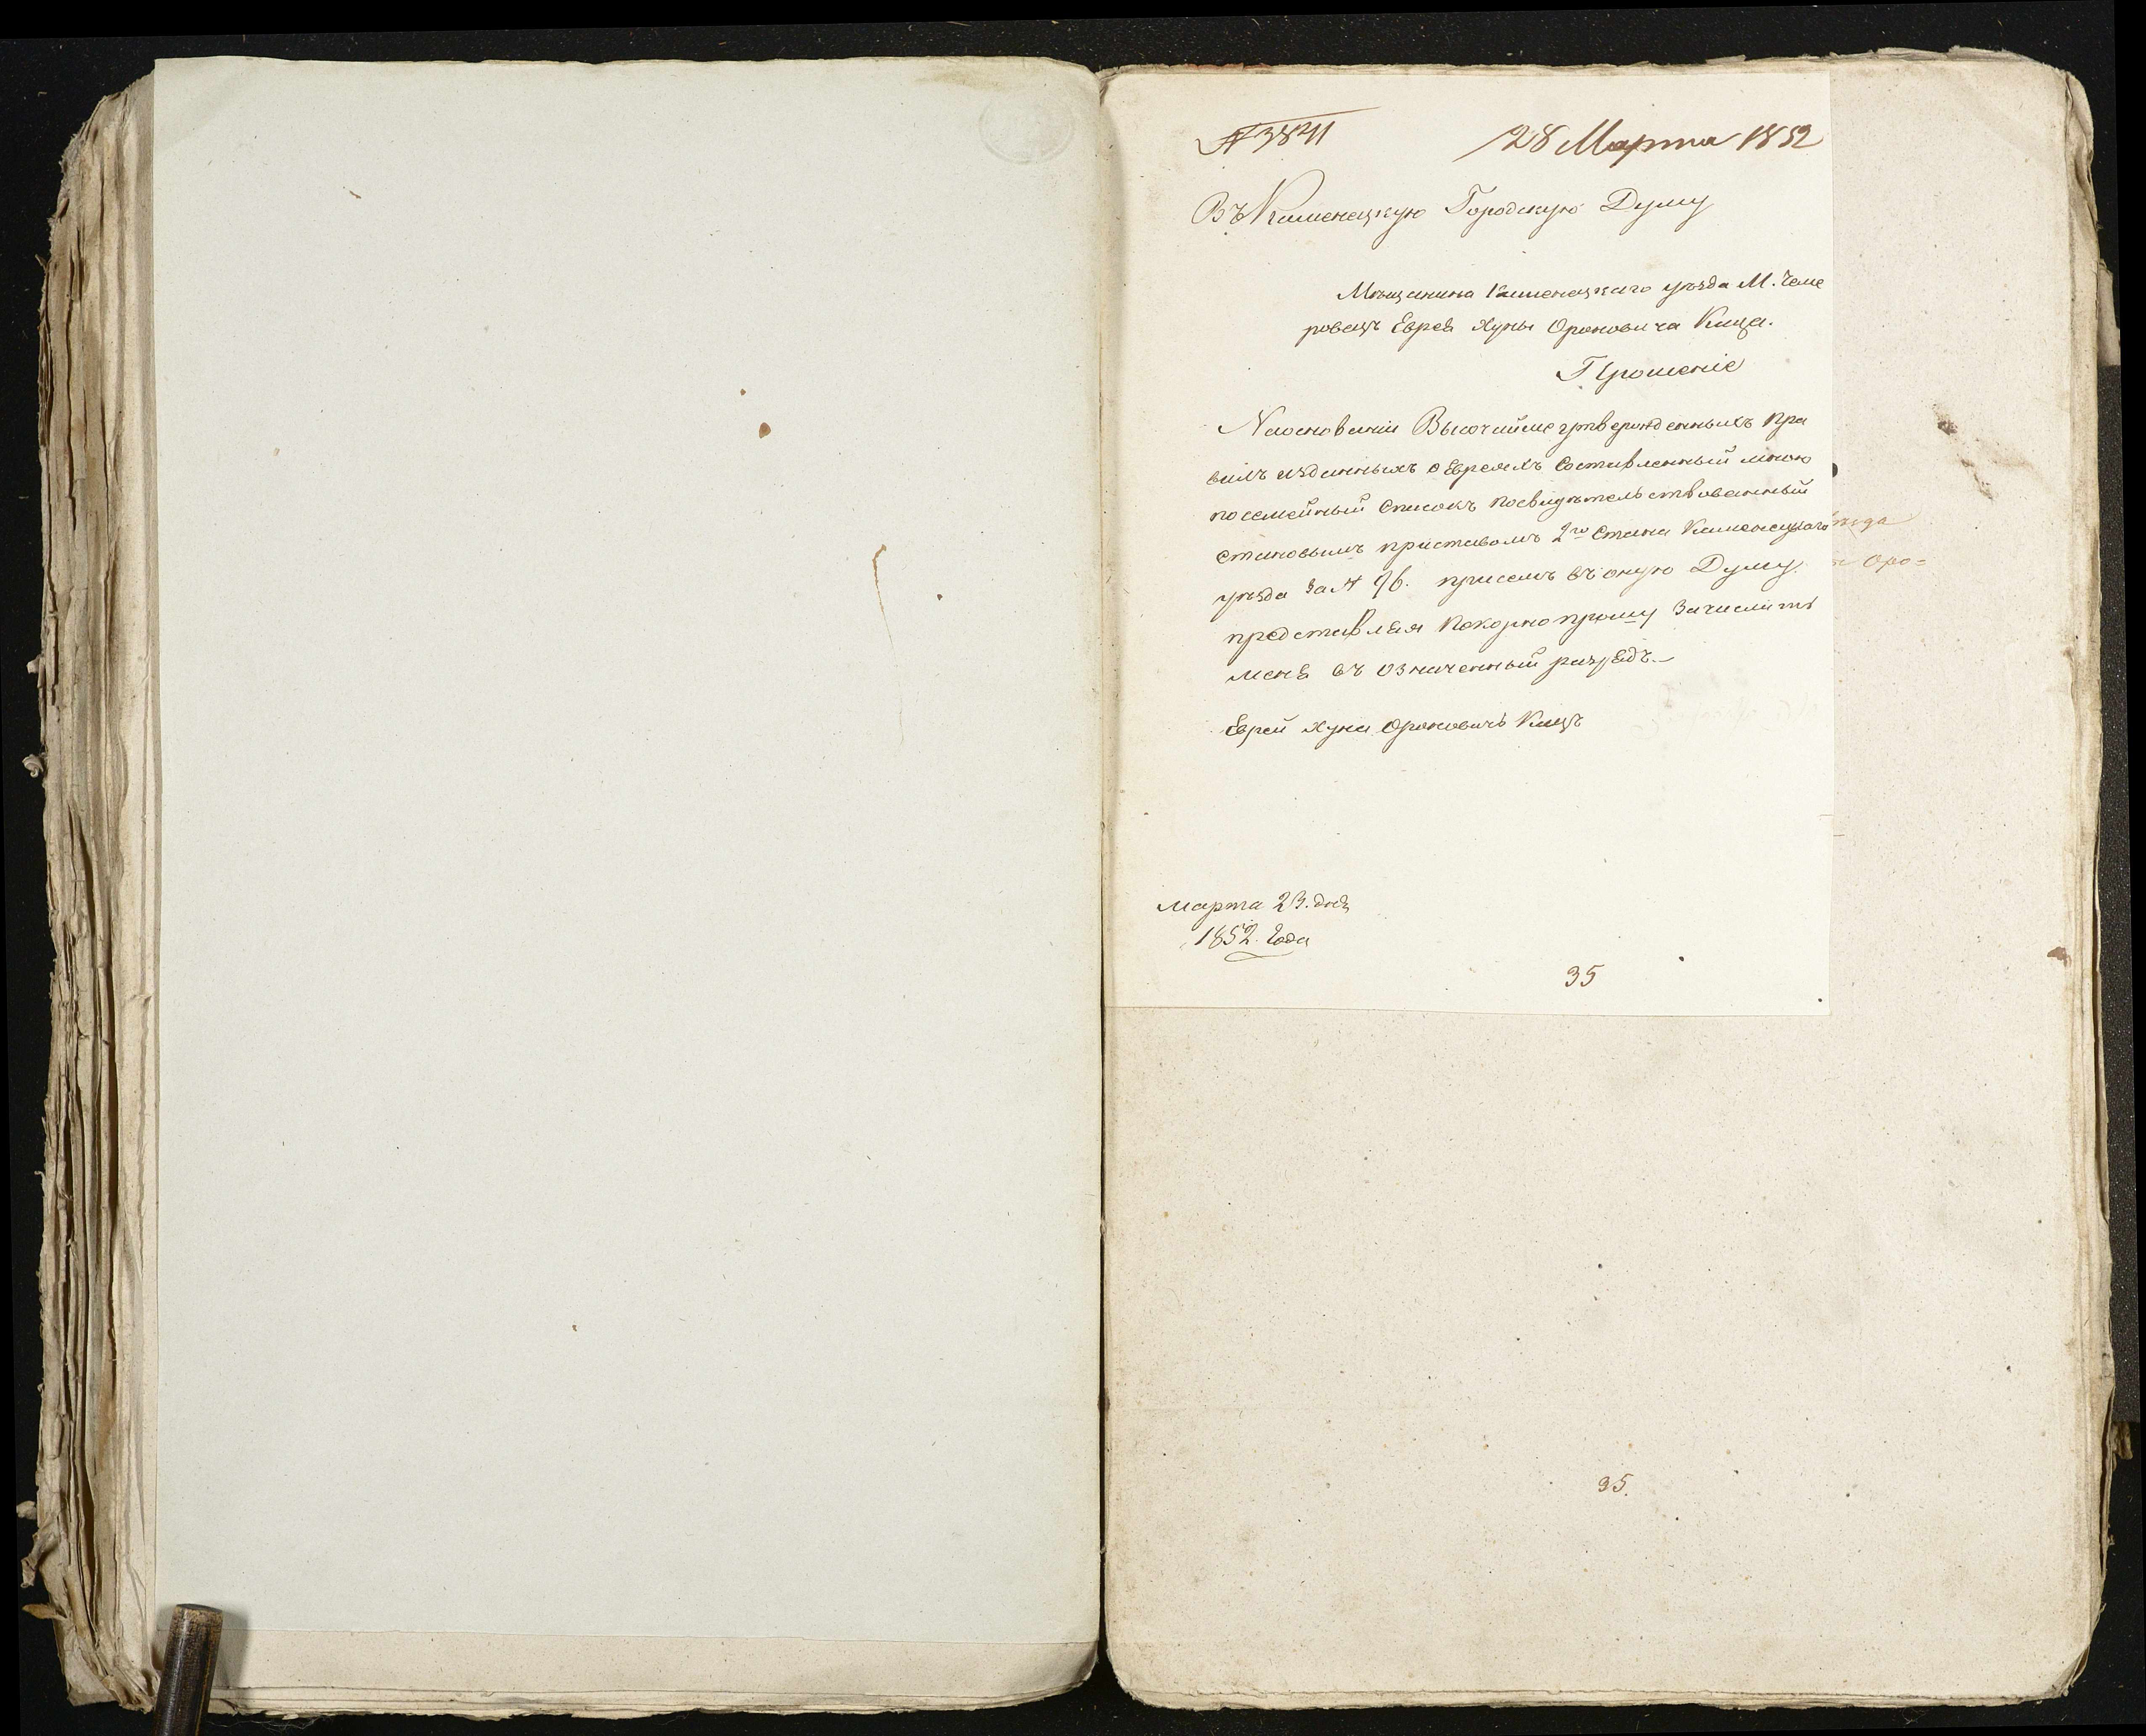 № 3841
28 Марта 1852
Въ Каменецкую Городскую Думу
Мѣщанина Каменецкаго уѣзда М. Чеме
ровецъ Еврея Хуны Ороновича Каца.
Прошеніе
На основаніи Высочайше утвержденныхъ Пра
вилъ изданныхъ о Евреяхъ Составленный мною
посемейный Списокъ посвидѣтельствованный
Становымъ приставомъ 2го Стана Каменецкаго
уѣзда За № 96. присемъ въ оную Думу.
представляя Покорно прошу Зачислить
меня въ означенный разрядъ.
Еврей Хуна Ороновичъ Кацъ
Марта 23. дня
1852. Года
35
ѣзда
Оро=
35.